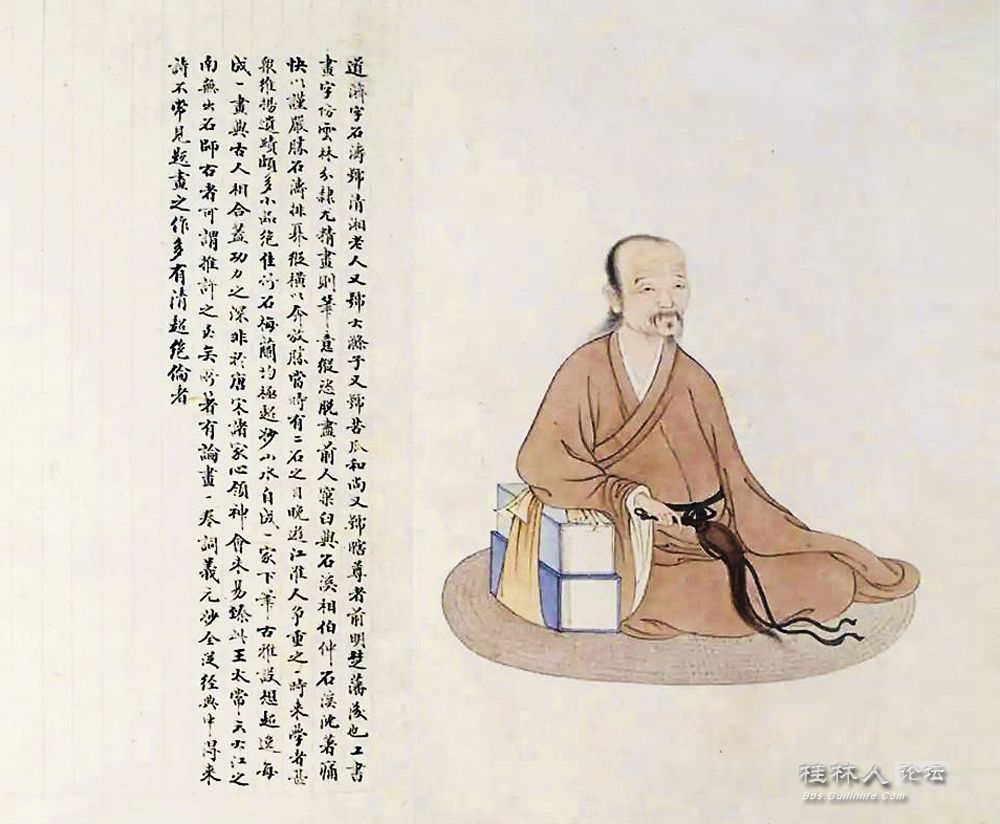 道濟字石濤號清湘老人又號大滌子又號苦瓜和尚又號瞎尊者前明楚藩後也工書
畫字仿雲林分隸尤精畫則筆意縱恣脫盡前人窠臼與石溪相伯仲石溪沈著痛
快以謹嚴勝石濤排奡縱橫以奔放勝當時有二石之目晚遊江淮人爭重之一時來學者甚
衆維揚遺蹟頗多小品絕佳竹石梅蘭均極超妙山水自成一家下筆古雅設想超逸每
成一畫與古人相合蓋功力之深非於唐宋諸家心領神會未易臻此王太常云大江之
南無出石師右者可謂推許之至矣所著有論畫一卷詞義元妙全從經典中得來
詩不常見題畫之作多有清超絕倫者
桂林人 论坛
Bbs.Guilinlife.Com